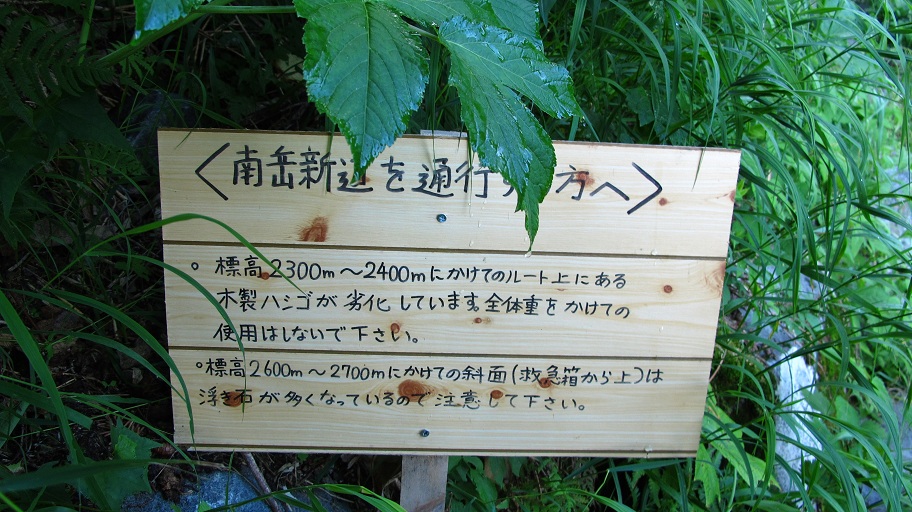 <南岳新道を通行する方へ>
○ 標高2300m〜2400mにかけてのルート上にある
木製ハシゴが劣化しています。全体重をかけての
使用はしないで下さい。
○標高2600m〜2700mにかけての斜面(救急箱から上)は
浮き石が多くなっているので注意して下さい。